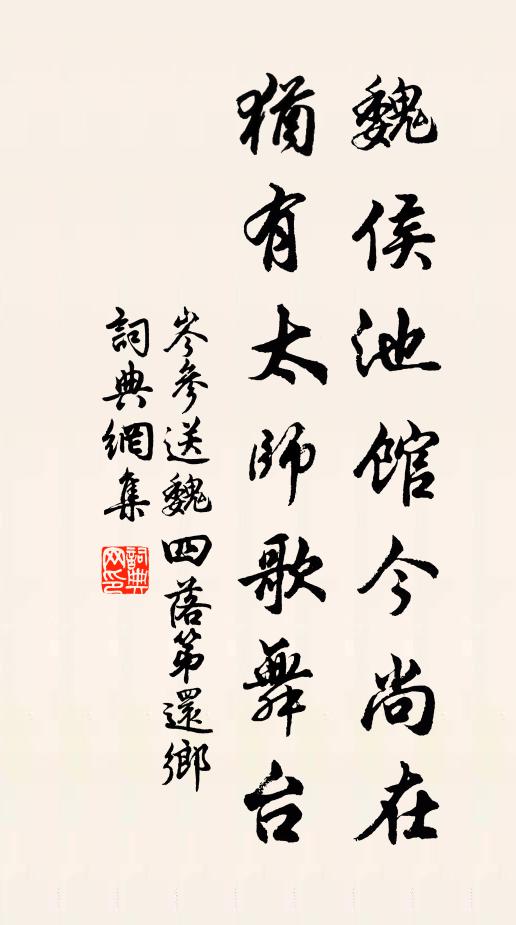 魏侯池館今尚在
猶有太師歌舞台
岑參送魏四落第還鄉
詞典網集
詞典网印